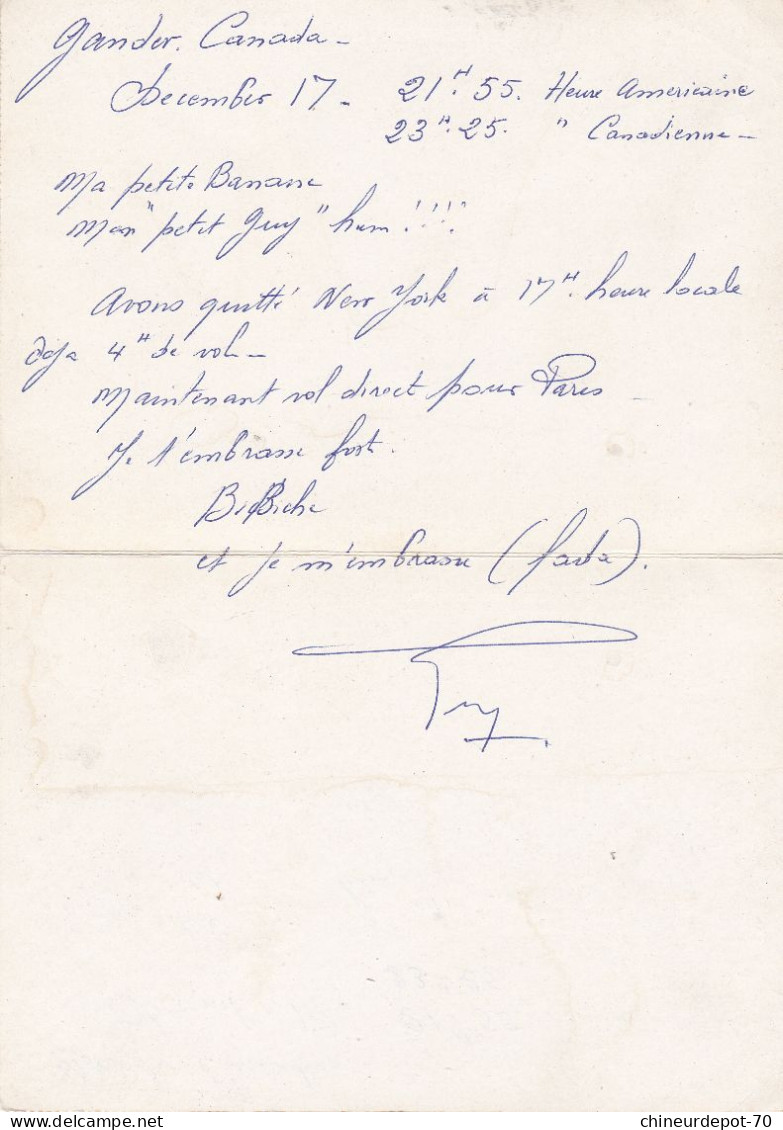 Gander. Canada -
December 17 - 21H.55. Heure Americaine
23H.25. " Canadienne -
Ma petite Banane
Mon "petit Guy" hum !!!!
Avons quitté New York à 17H. heure locale
déja 4H de vol -
Maintenant vol direct pour Paris -
Je t'embrasse fort.
BicBiche
et je m'embrasse (fada).
Guy
chineurdepot-70